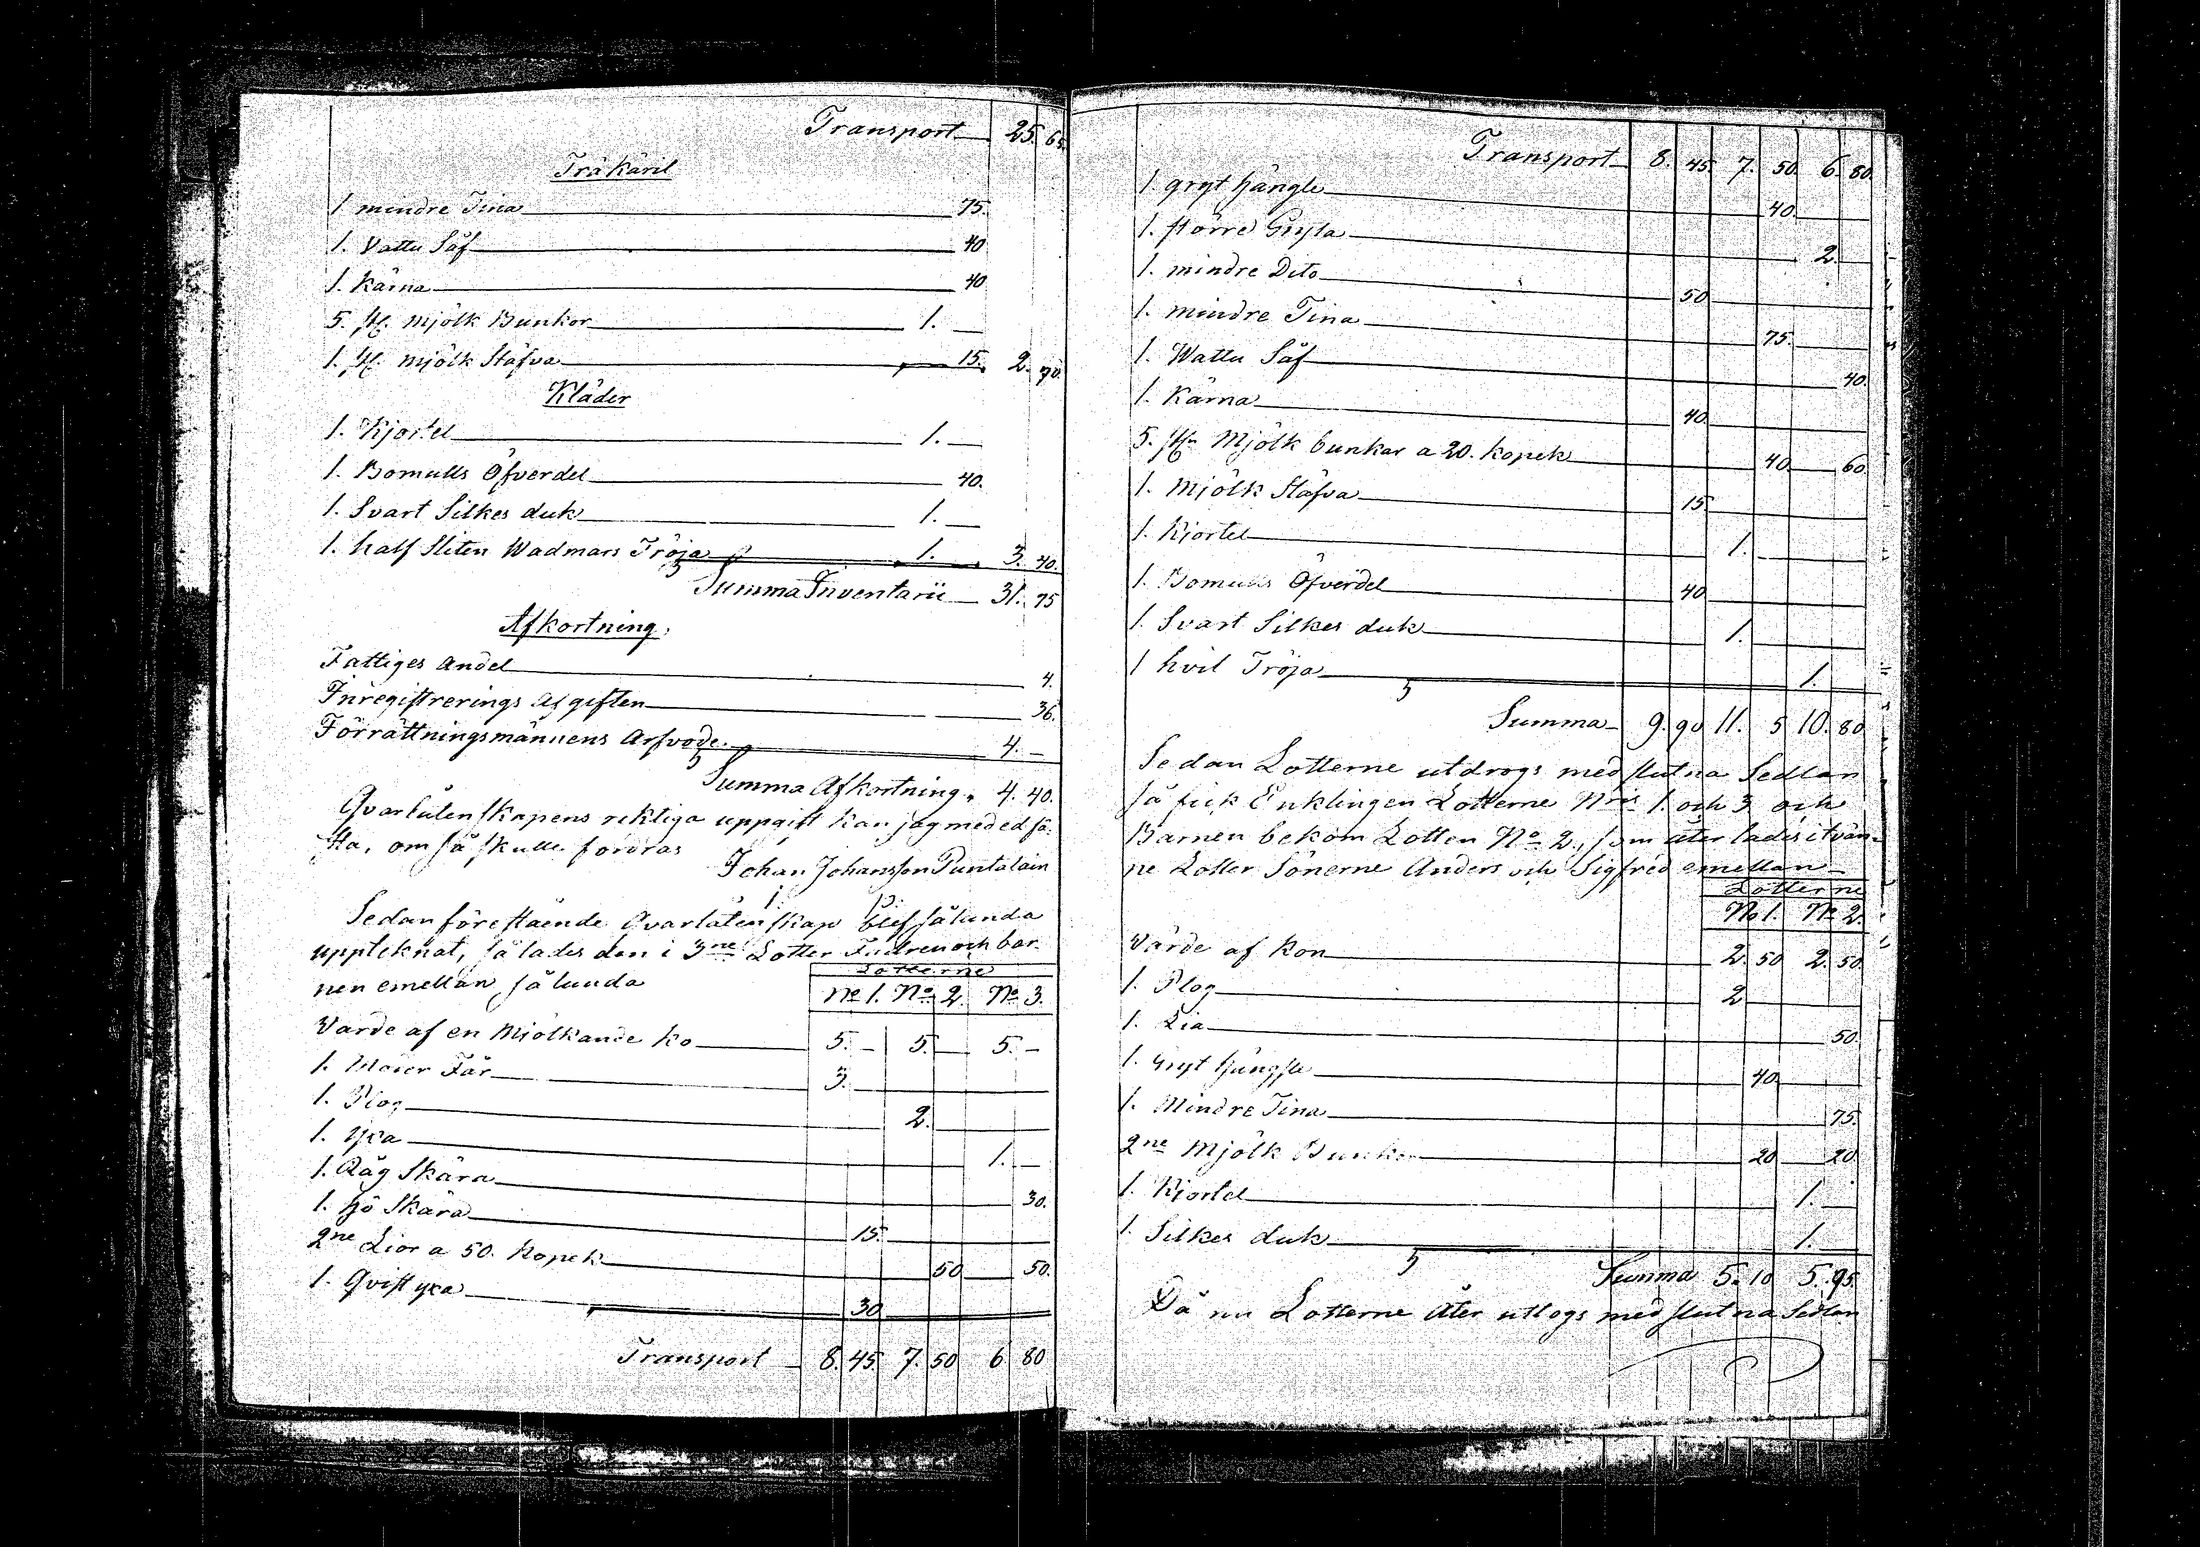 Transport 25. 65.
Träkäril
1 mindre Tina 75.
1. Vattu Såf 40
1. Kärna 40
5. st. mjölk Bunkor 1. —
1. st. mjölk Stäfva 15. 2. 70.
Kläder
1. Kjortel 1. —
1. Bomulls Öfverdel 40.
1. Svart Silkes duk 1. —
1. half sliten Wadmars Tröja 1. 3. 40.
Summa Inventarii 31. 75
Afkortning.
Fattiges andel 4.
Inregistrerings afgiften 36.
Förrättningsmännens Arfvode 4. —
Summa Afkortning. 4. 40.
Qvarlåtenskapens riktiga uppgift kan jag med ed fä-
sta, om så skulle fordras
Johan Johansson Puntalain
Sedan förestående Qvarlåtenskap blef sålunda
uppteknat, så lades den i 3ne Lotter Fadren och bar-
nen emellan sålunda
Lotterne
No 1. No 2. No 3.
Värde af en Mjölkande ko 5. — 5. — 5. —
1. Får 3. —
1. Plog 2.
1. yxa 1. —
1. Råg Skära 30.
1. hö Skära 15.
2ne Lior a 50. kopek 50 50.
1. Qvist yxa 30
Transport 8. 45. 7. 50 6. 80
Transport 8. 45. 7. 50. 6. 80.
1. gryt hängle 40.
1. större Gryta 2. —
1. mindre Dito 50
1. mindre Tina 75.
1. Wattu Såf 40.
1. Kärna 40.
5. st. Mjölk bunkar a 20. kopek 40 60
1. Mjölk Stäfva 15
1. Kjortel 1. —
1. Bomulls Öfverdel 40
1. Svart Silkes duk 1.
1 hvit Tröja 1.
Summa 9. 90 11. 5 10. 80
Sedan Lotterne utdrogs med slutna Sedlar
så fick Enklingen Lotterne Nris 1. och 3 och
Barnen bekom Lotten No 2., som åter lades i tvän-
ne Lotter Sönerne Anders och Sigfrid emellan
Lotterne
No 1. No 2.
Värde af kon 2. 50 2. 50.
1. Plog 2
1. Lia 50
1. Gryt hängle 40
1. Mindre Tina 75.
2ne Mjölk Bunkor 20 20.
1. Kjortel 1. —
1. Silkes duk 1. —
Summa 5. 10 5. 95.
Då nu Lotterne åter uttogs med slutna Sedlar